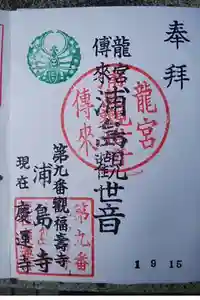 奉拝
龍宮
傳來
浦島觀世音
龍宮
傳來
第九番觀福壽寺
浦島寺
現在 慶運寺
第九番
1 9 15